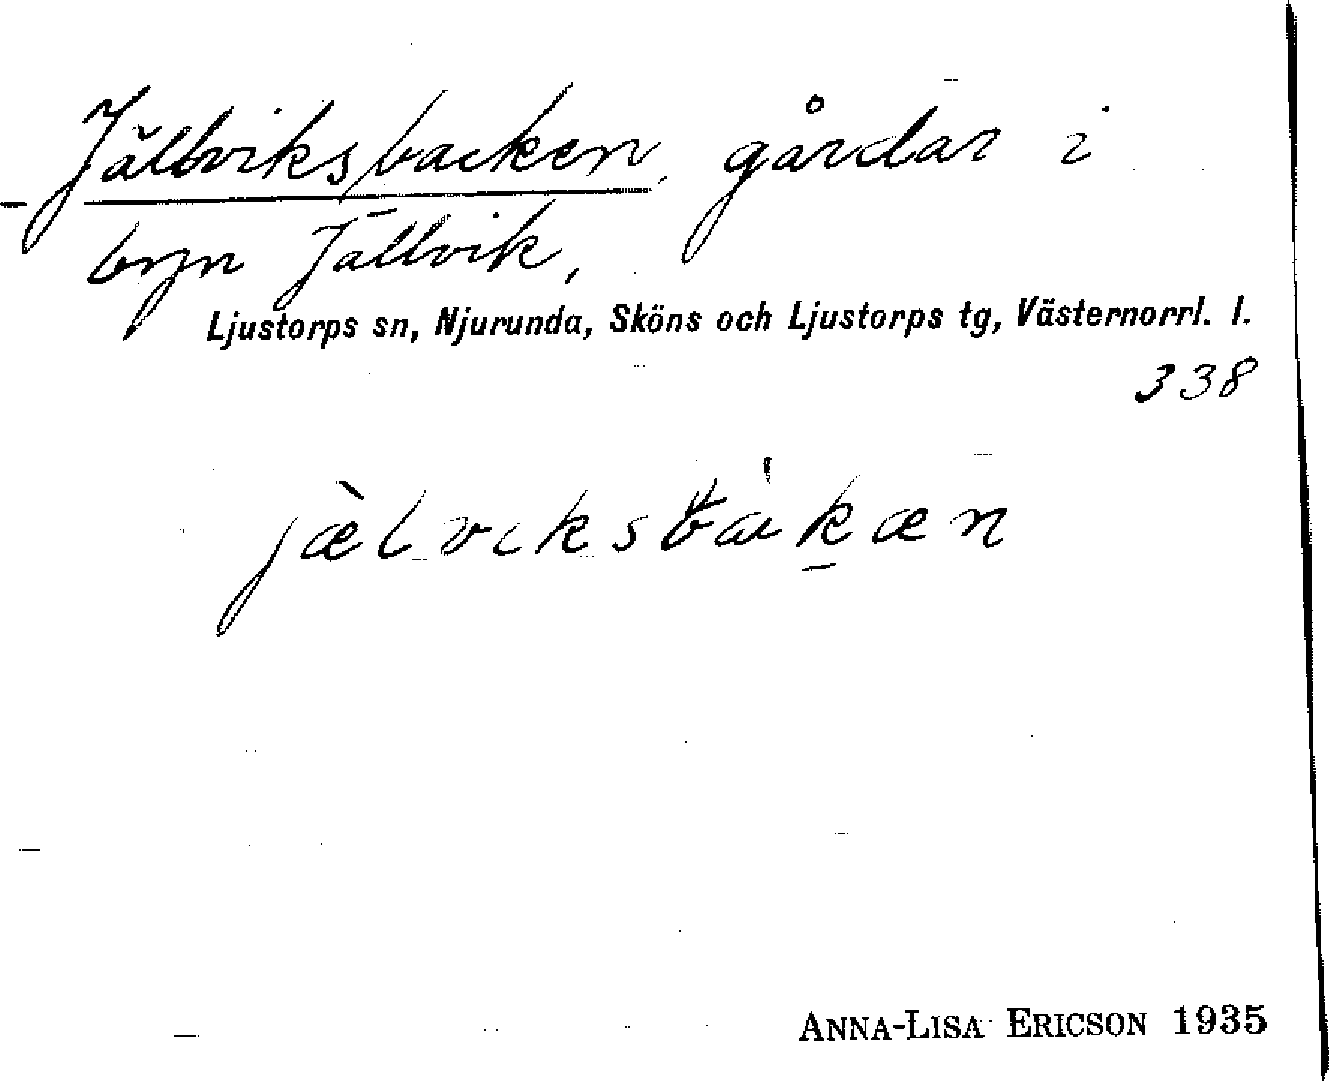 Jällviksbacken, gårdar i
byn Jällvik,
Ljustorps sn, Njurunda, Sköns och Ljustorps tg, Västernorrl. l.
338
jæ̀lviksbakæn
ANNA-LISA ERICSON 1935